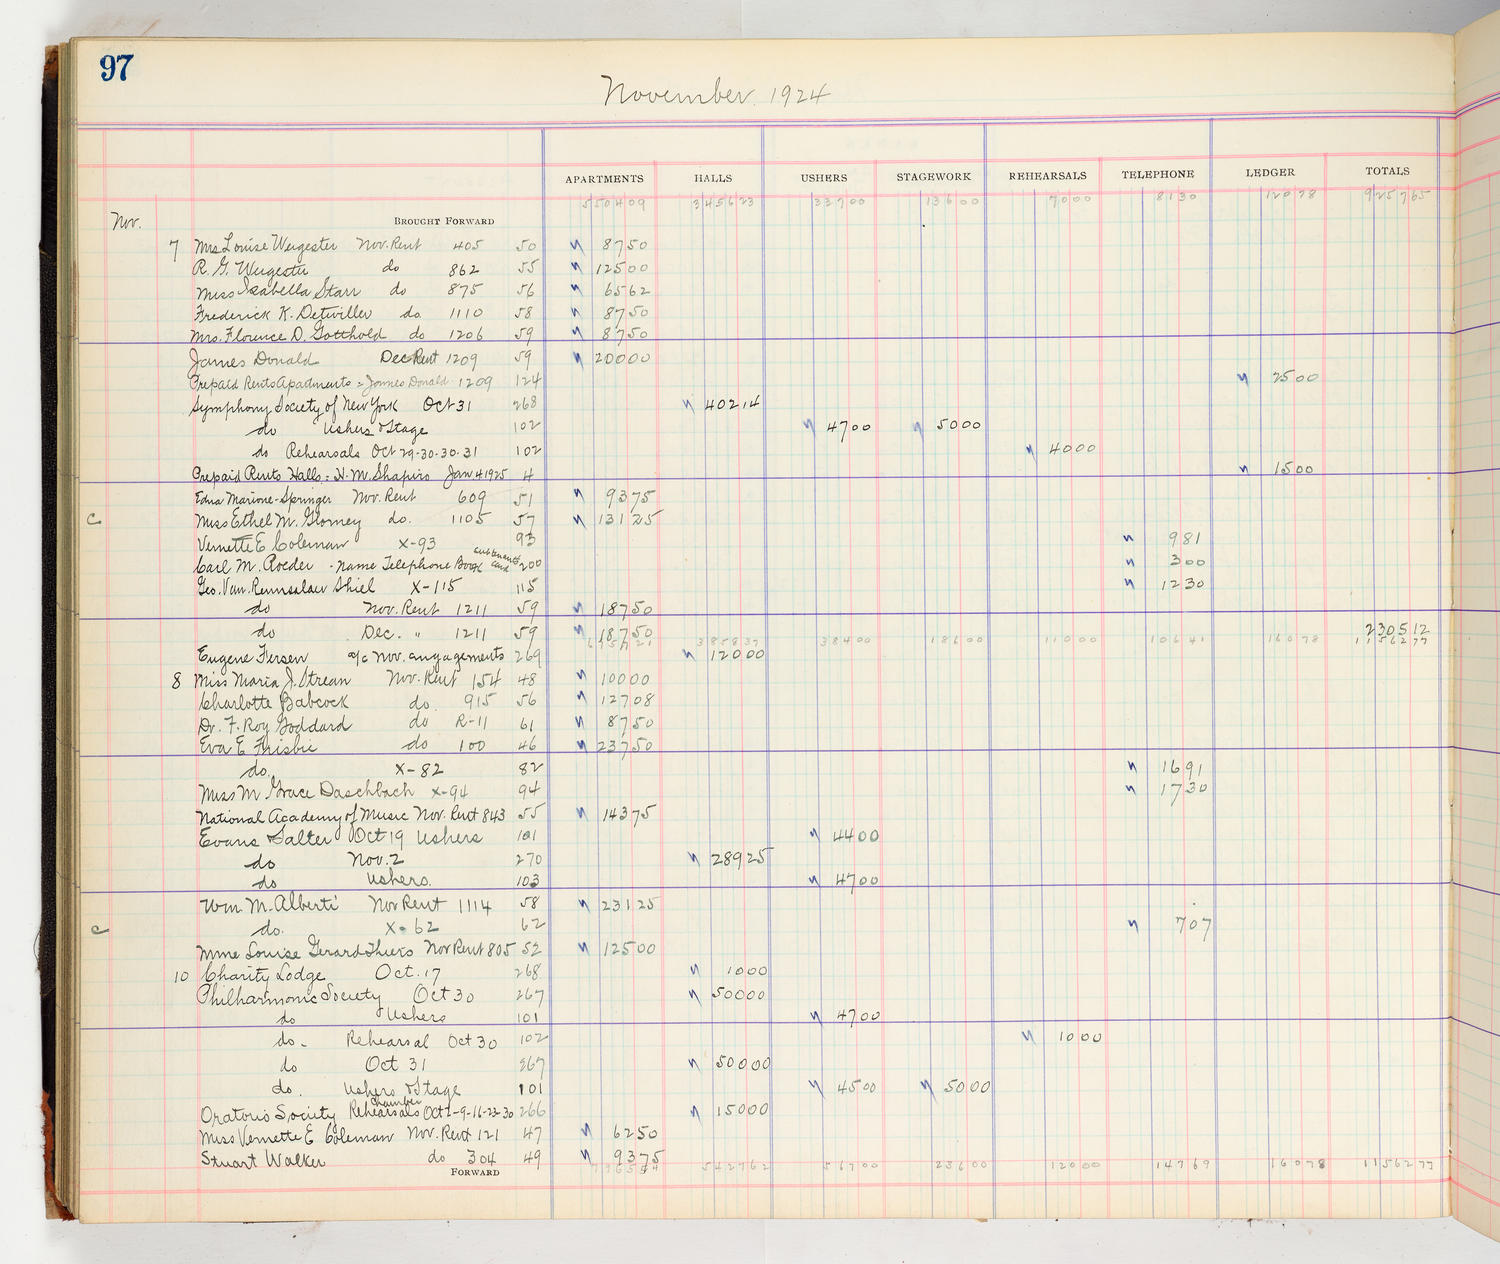 97
November 1924
APARTMENTS HALLS USHERS STAGEWORK REHEARSALS TELEPHONE LEDGER TOTALS
550409 345623 33700 13600 7000 8130 12078 925765
Nov. BROUGHT FORWARD
7 Mrs Louise Weigester Nov. Rent 405 50 8750
R. G. Weigester do 862 55 12500
Miss Isabella Starr do 875 56 6562
Frederick K. Detwiller do. 1110 58 8750
Mrs. Florence D. Gotthold do 1206 59 8750
James Donald Dec Rent 1209 59 20000
Prepaid Rents Apartments = James Donald 1209 124 2500
Symphony Society of New York Oct 31 268 40214
do Ushers & Stage 102 4700 5000
do Rehearsals Oct 29-30-30-31 102 4000
Prepaid Rents Halls = H. M. Shapiro Jan 4 1925 4 1500
Edna Marione-Springer Nov. Rent 609 51 9375
C Miss Ethel M. Glomey do. 1105 57 13125
Vernette E Coleman X-93 93 981
Carl M. Roeder - name Telephone Book and 200 300
Geo. Van Rennsalaer Shiel X-115 115 1230
do Nov. Rent 1211 59 18750
do Dec. " 1211 59 18750 230512
385837 38400 18600 11000 10641 16078 1156277
Eugene Fersen a/c Nov. engagements 269 12000
8 Miss Maria J. Strean Nov. Rent 154 48 10000
Charlotte Babcock do. 915 56 12708
Dr. F. Roy Goddard do R-11 61 8750
Eva E Frisbie do 100 46 23750
do. X-82 82 1691
Miss M. Grace Daschbach X-94 94 1730
National Academy of Music Nov. Rent 843 55 14375
Evans & Salter Oct 19 Ushers 101 4400
do Nov. 2 270 28925
do Ushers. 103 4700
Wm M. Alberti Nov Rent 1114 58 23125
C do. X-62 62 707
Mme Louise Gerard Thiers Nov Rent 805 52 12500
10 Charity Lodge Oct. 17 268 1000
Philharmonic Society Oct 30 267 50000
do Ushers 101 4700
do - Rehearsal Oct 30 102 1000
do Oct 31 267 50000
do. Ushers & Stage 101 4500 5000
chamber
Oratorio Society Rehearsals Oct 2-9-16-23-30 266 15000
Miss Vernette E Coleman Nov. Rent 121 47 6250
Stuart Walker do 304 49 9375
FORWARD 542762 56700 23600 12000 14769 16078 1156277